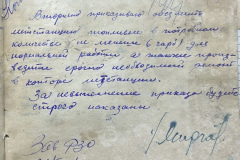 Вторично приказываю обеспечить
метстанцию топливом в потребном
количестве не менее 6 гарб для
нормальной работы а также произ-
ведите срочно необходимый ремонт
в конторе метстанции.
За невыполнение приказа будете
строго наказаны
Зав РЗО